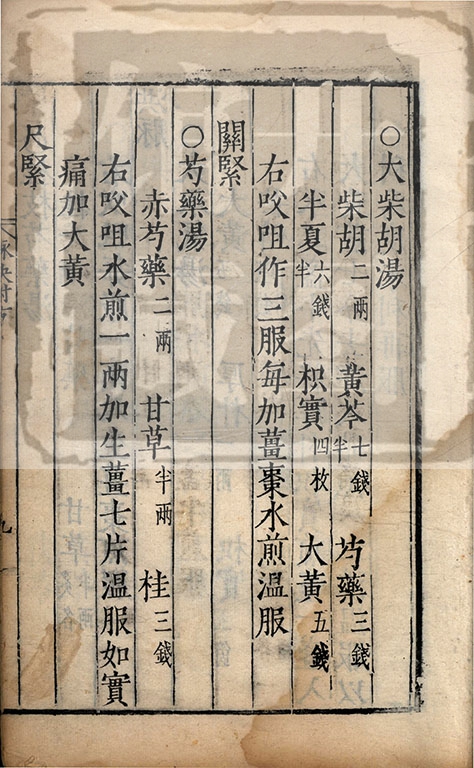 〇大柴胡湯
柴胡二兩 黃芩七錢半 芍藥三錢
半夏六錢半 枳實四枚 大黃五錢
右㕮咀作三服每加薑棗水煎溫服
關緊
〇芍藥湯
赤芍藥二兩 甘草半兩 桂三錢
右㕮咀水煎一兩加生薑七片溫服如實
痛加大黃
尺緊
九